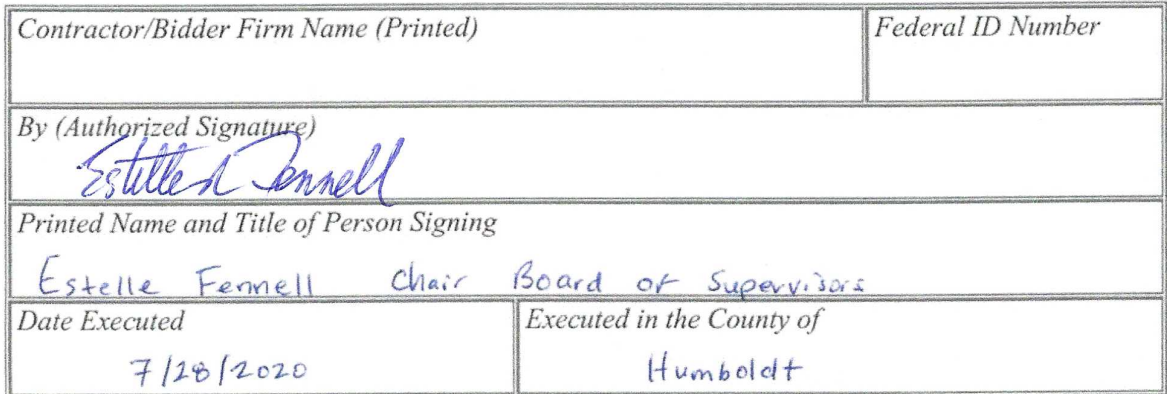 Contractor/Bidder Firm Name (Printed)
Federal ID Number
By (Authorized Signature)
Estelle Fennell
Printed Name and Title of Person Signing
Estelle Fennell Chair Board of Supervisors
Date Executed
Executed in the County of
7/28/2020
Humboldt